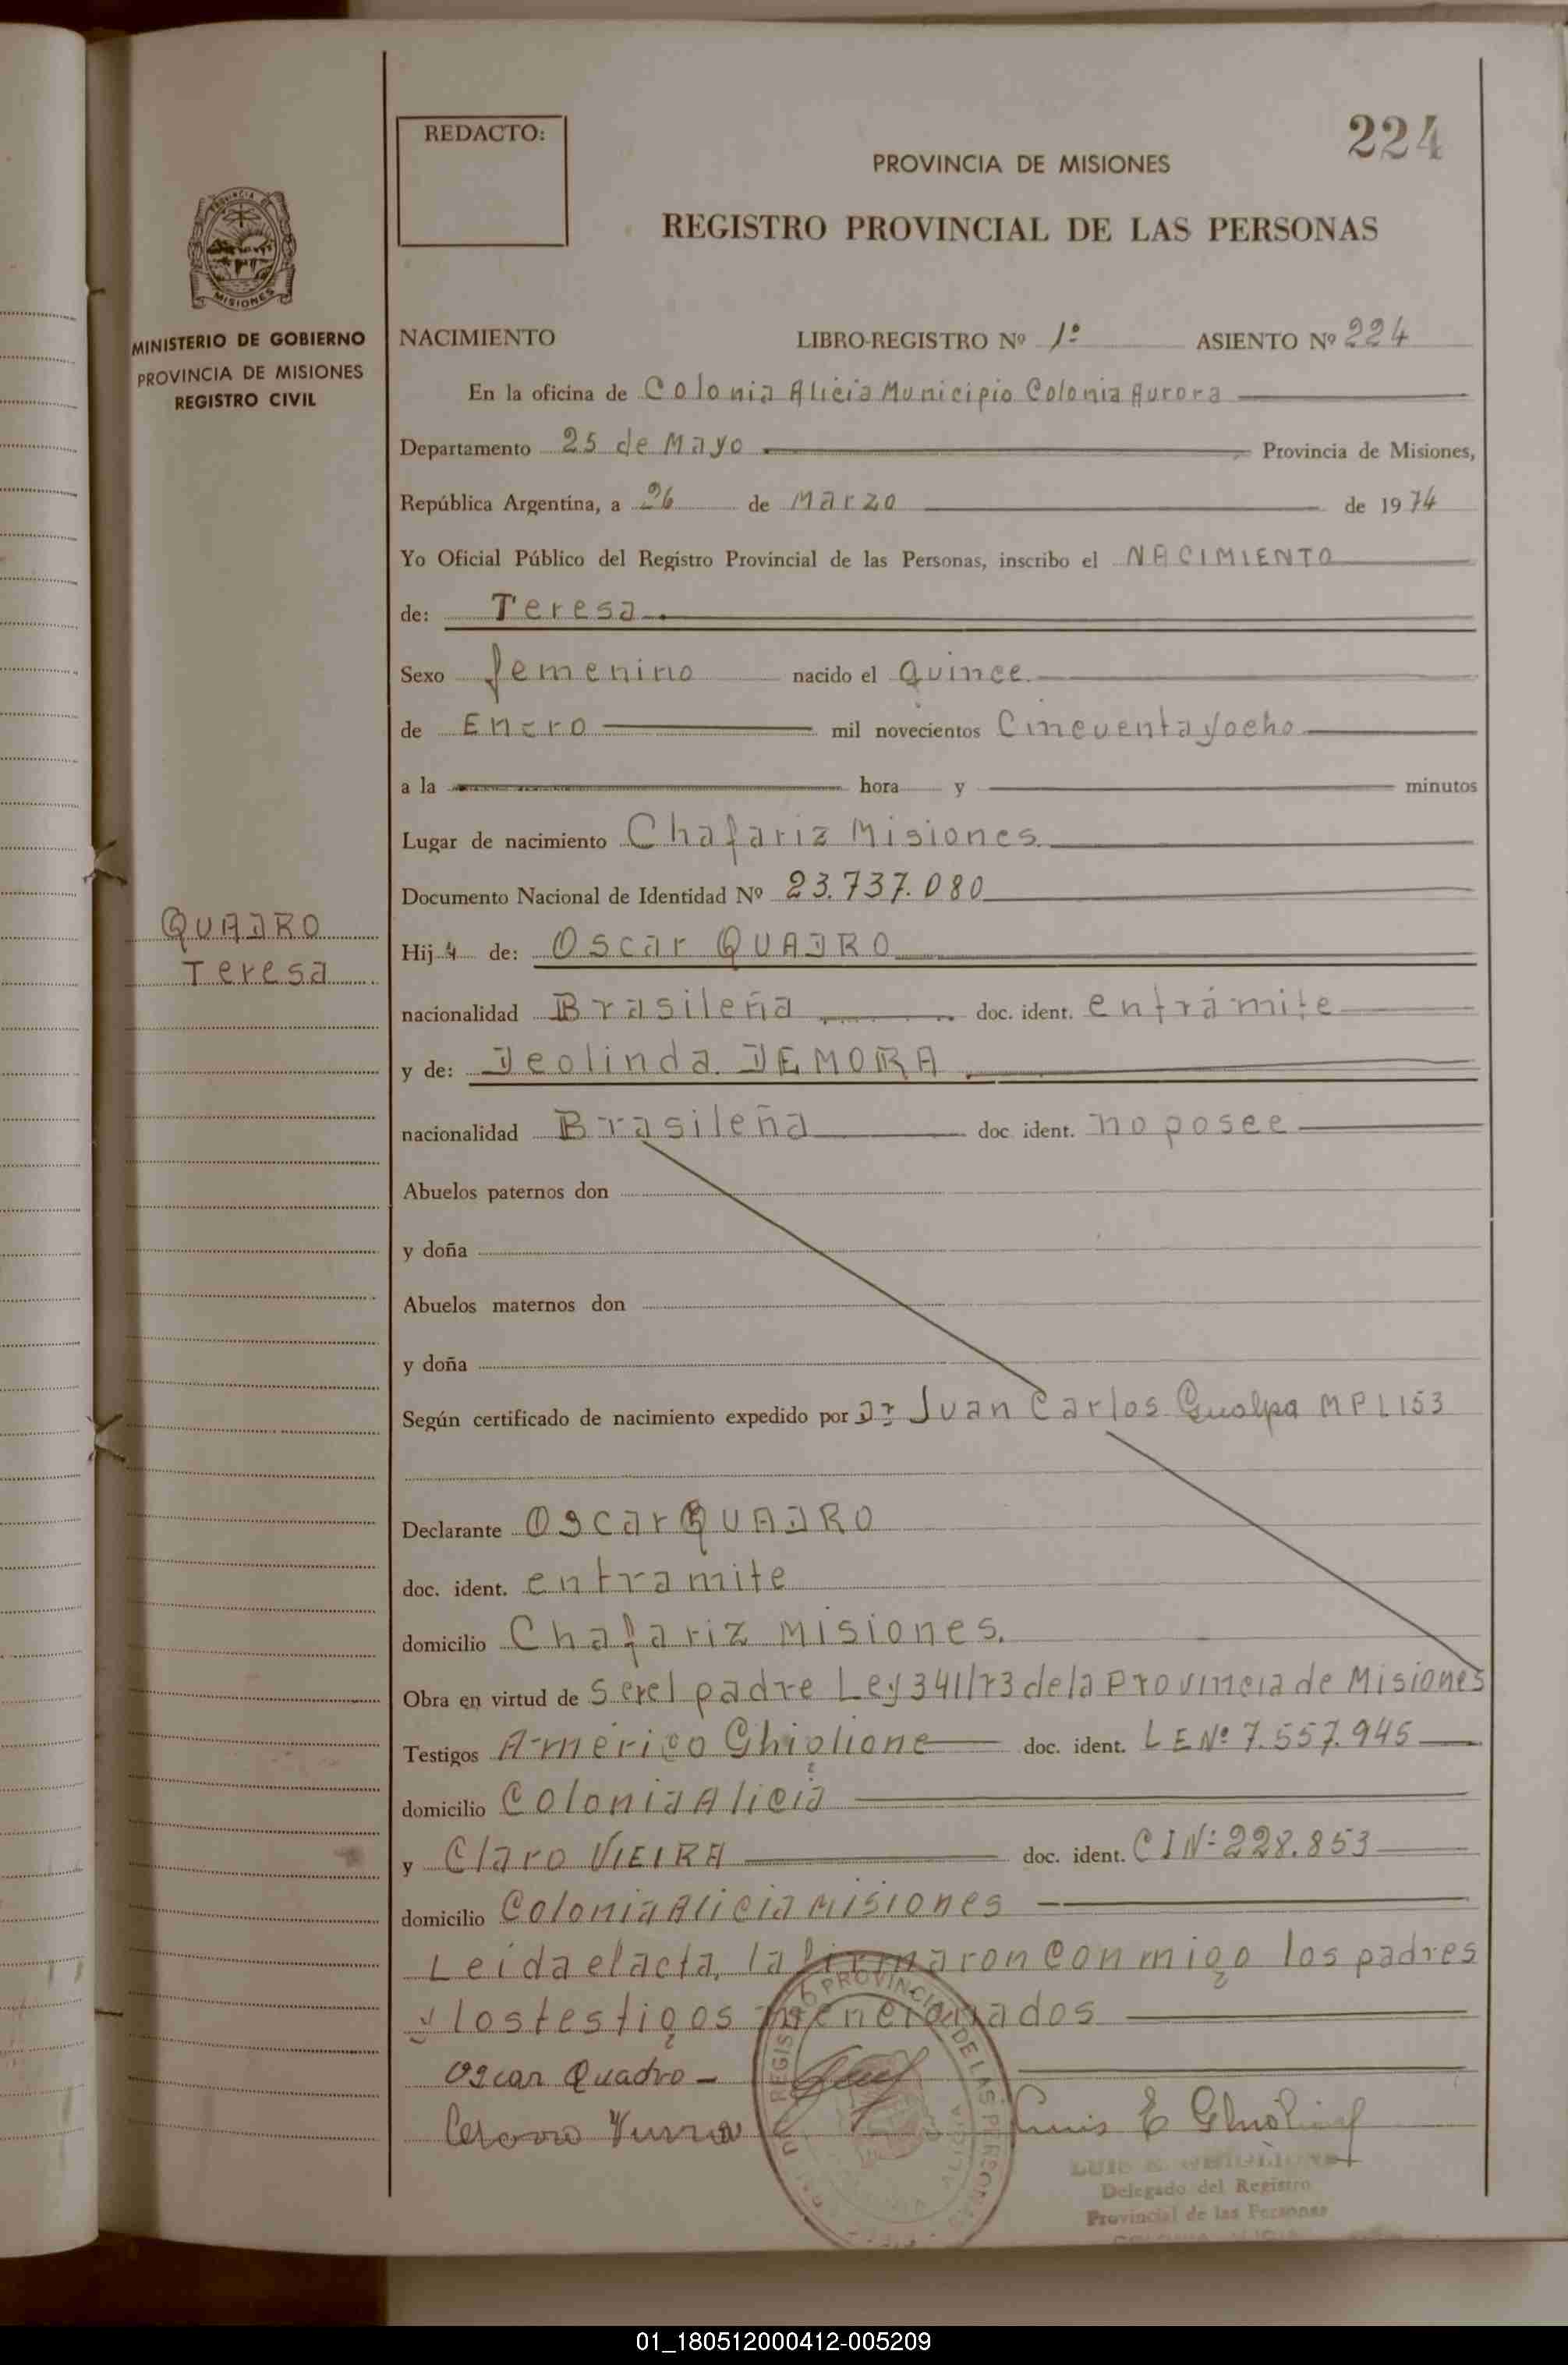 REDACTO:
224
PROVINCIA DE MISIONES
REGISTRO PROVINCIAL DE LAS PERSONAS
PROVINCIA DE
MISIONES
MINISTERIO DE GOBIERNO
PROVINCIA DE MISIONES
REGISTRO CIVIL
NACIMIENTO LIBRO-REGISTRO Nº 1º ASIENTO Nº 224
En la oficina de Colonia Alicia Municipio Colonia Aurora
Departamento 25 de Mayo Provincia de Misiones,
República Argentina, a 26 de Marzo de 1974
Yo Oficial Público del Registro Provincial de las Personas, inscribo el NACIMIENTO
de: Teresa
Sexo femenino nacido el Quince
de Enero mil novecientos Cincuenta y ocho
a la hora y minutos
Lugar de nacimiento Chafariz Misiones.
Documento Nacional de Identidad Nº 23.737.080
QUADRO
Teresa
Hij a de: Oscar QUADRO
nacionalidad Brasileña doc. ident. en trámite
y de: Deolinda DEMORA
nacionalidad Brasileña doc ident. no posee
Abuelos paternos don
y doña
Abuelos maternos don
y doña
Según certificado de nacimiento expedido por Dr Juan Carlos Gualpa MPL153
Declarante Oscar QUADRO
doc. ident. en tramite
domicilio Chafariz Misiones.
Obra en virtud de Ser el padre Ley 341/73 de la Provincia de Misiones
Testigos Américo Ghiglione doc. ident. LE Nº 7.557.945
domicilio Colonia Alicia
y Claro VIEIRA doc. ident. CI Nº 228.853
domicilio Colonia Alicia Misiones
Leida el acta, la firmaron conmigo los padres
y los testigos mencionados
REGISTRO PROVINCIAL DE LAS PERSONAS
Oscar Quadro
Luis E
Delegado del Registro
Provincial de las Personas
01_180512000412-005209